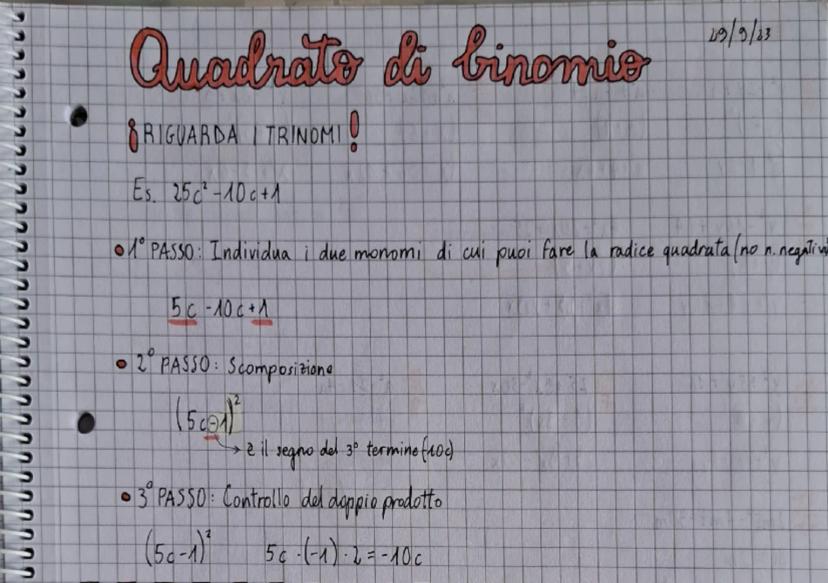 Quadrato di binomio
29/9/23
¡RIGUARDA I TRINOMI!
Es. 25c² - 10c + 1
• 1° PASSO: Individua i due monomi di cui puoi fare la radice quadrata (no n. negativi
5c - 10c + 1
• 2° PASSO: Scomposizione
(5c - 1)²
→ è il segno del 3° termine (-10c)
• 3° PASSO: Controllo del doppio prodotto
(5c - 1)² 5c · (-1) · 2 = -10c